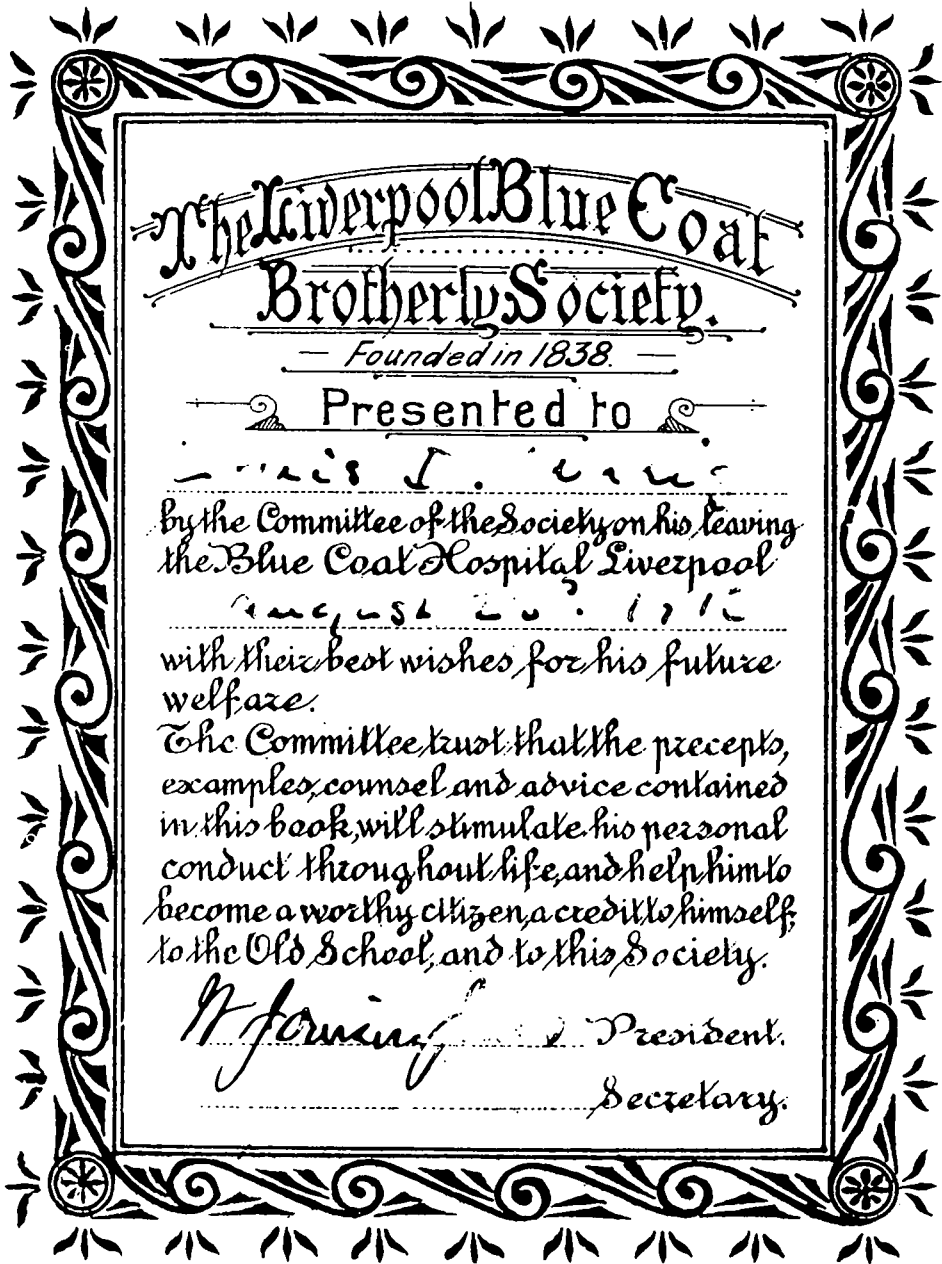 The Liverpool Blue Coat
Brotherly Society.
— Founded in 1838. —
Presented to
by the Committee of the Society on his leaving
the Blue Coat Hospital Liverpool
August
with their best wishes for his future
welfare.
The Committee trust that the precepts,
examples, counsel and advice contained
in this book, will stimulate his personal
conduct throughout life, and help him to
become a worthy citizen, a credit to himself,
to the Old School, and to this Society.
President.
Secretary.